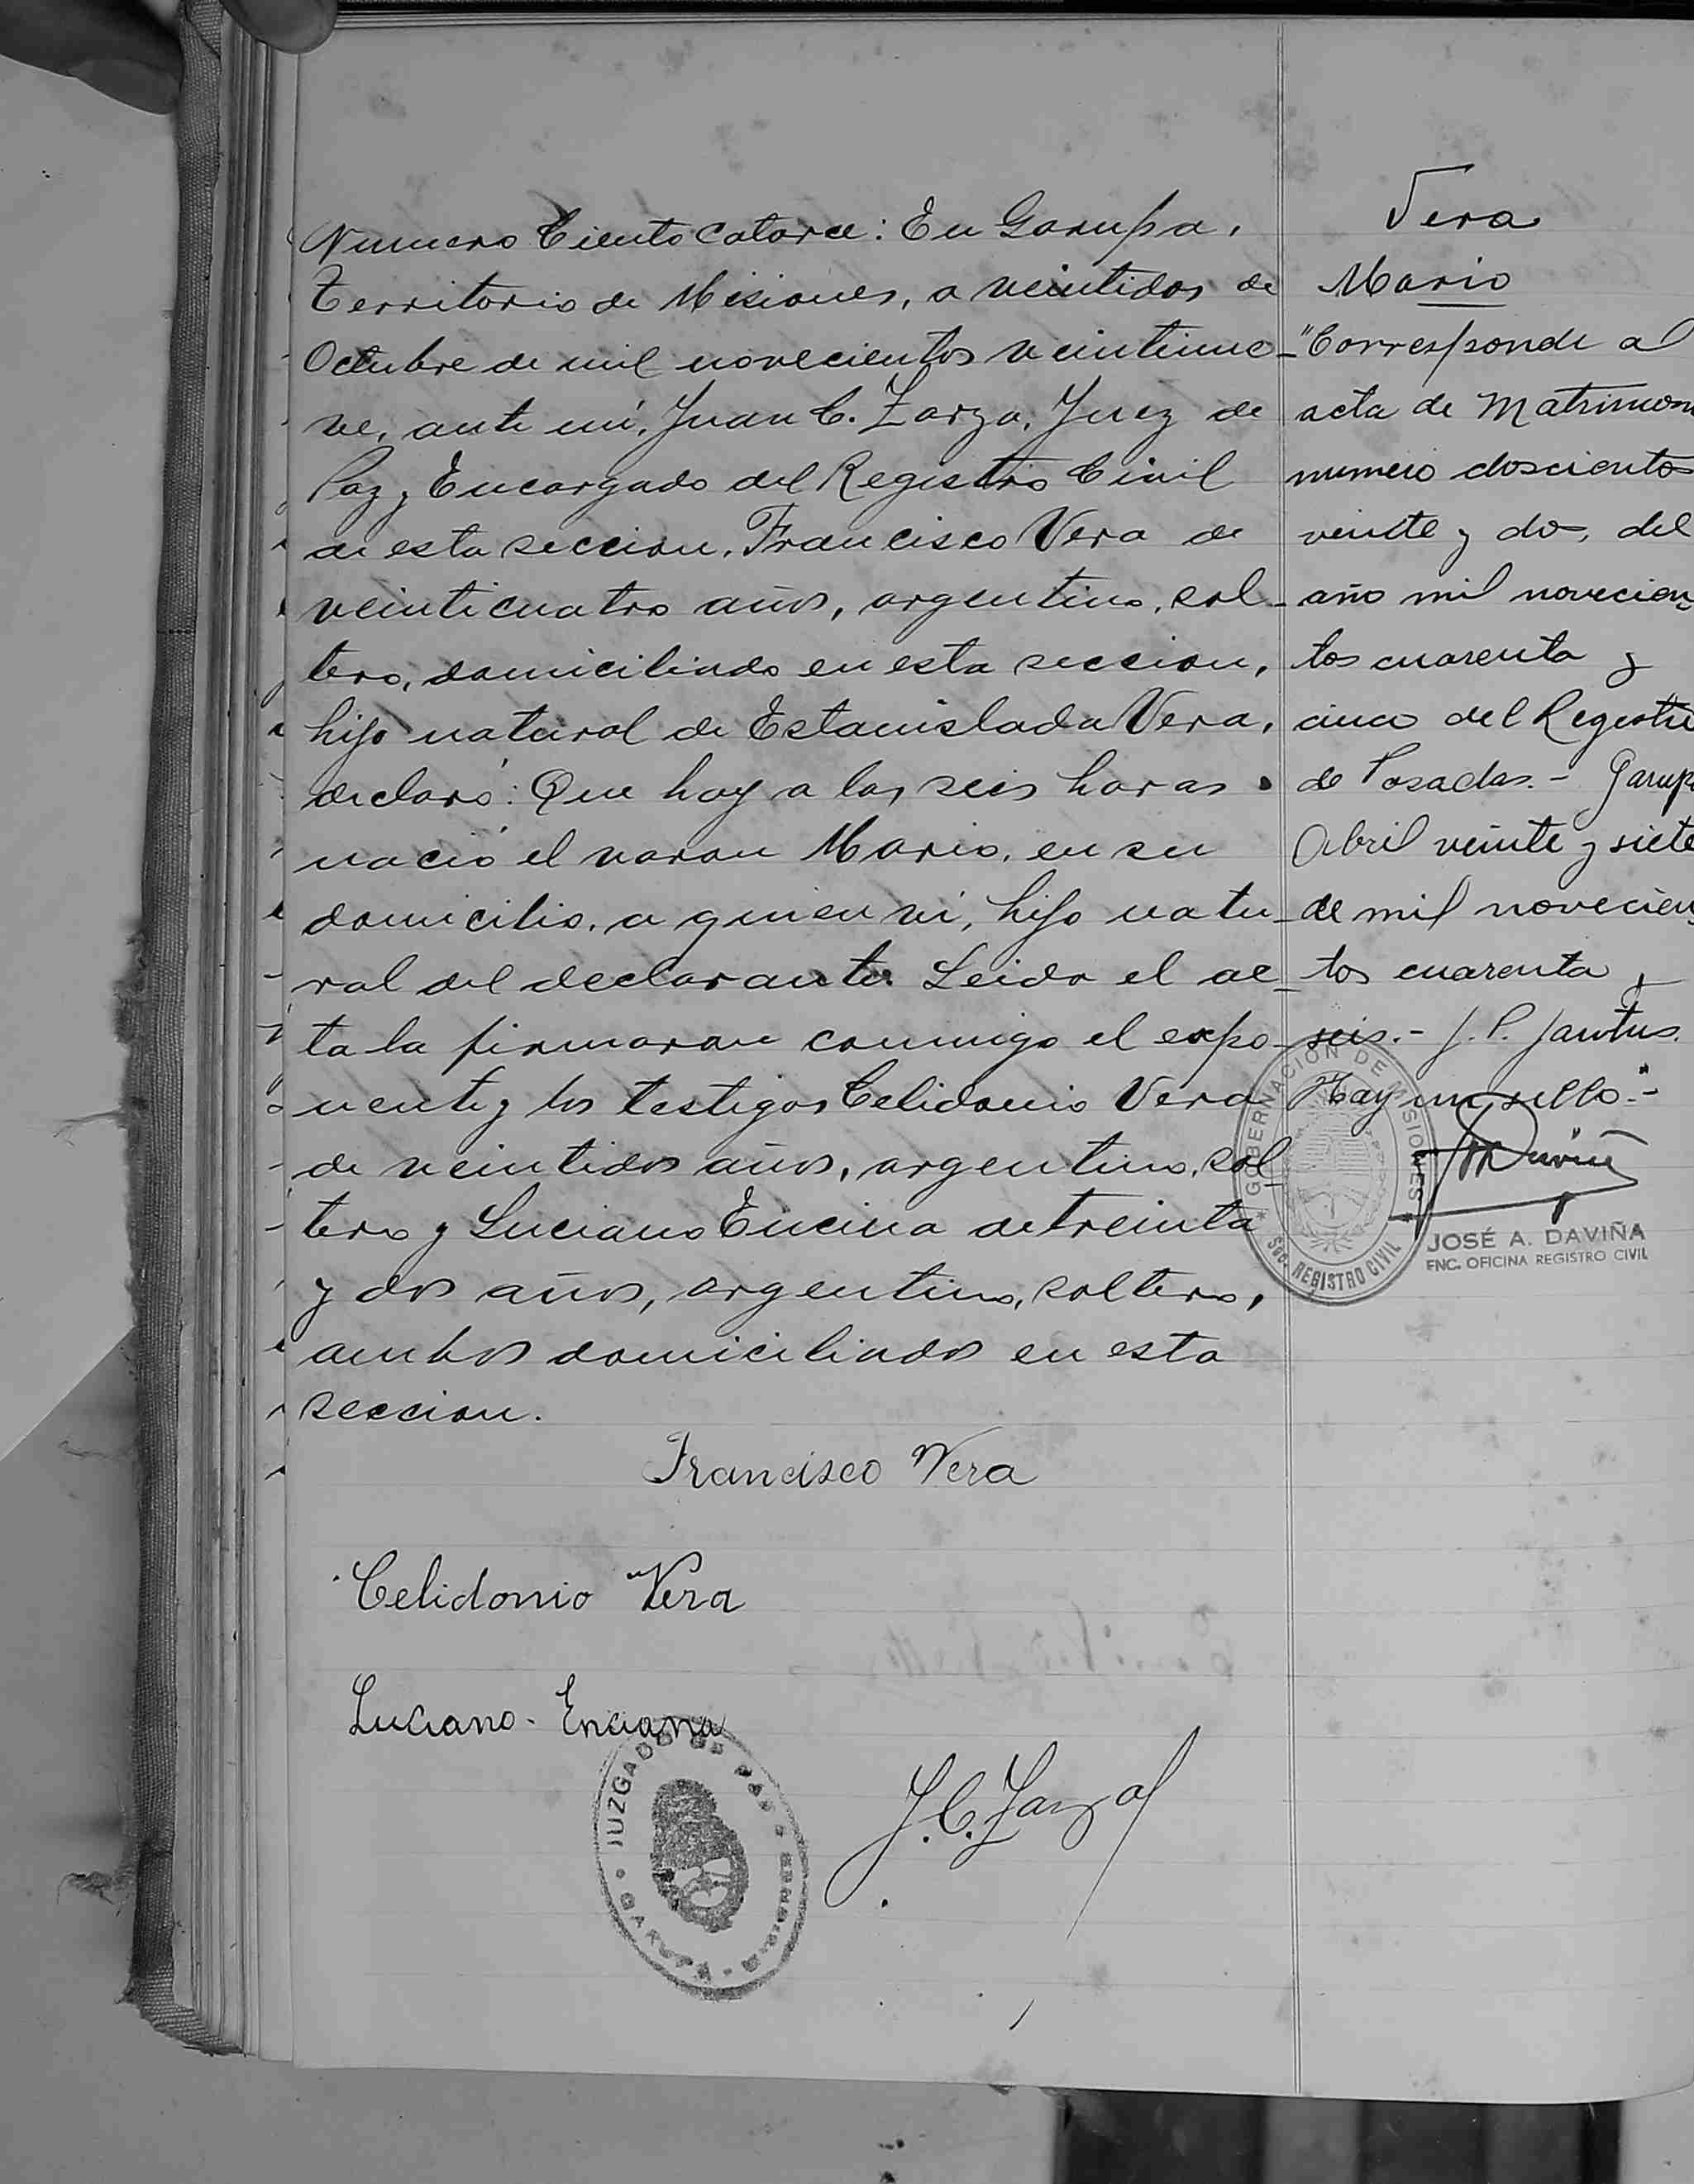 Numero Ciento Catorce: En Garupa,
Territorio de Misiones, a veintidos de
Octubre de mil novecientos veintinue-
ve, ante mí, Juan C. Zarza, Juez de
Paz y Encargado del Registro Civil
de esta seccion, Francisco Vera de
veinticuatro años, argentino, sol-
tero, domiciliado en esta seccion,
hijo natural de Estanislada Vera,
declaró: Que hoy a las seis horas
nació el varon Mario, en su
domicilio, a quien ví, hijo natu-
ral del declarante. Leida el ac-
ta la firmaron conmigo el expo-
nente y los testigos Celidonio Vera
de veintidos años, argentino, sol-
tero y Luciano Encina de treinta
y dos años, argentino, soltero,
ambos domiciliados en esta
seccion.
Francisco Vera
Celidonio Vera
Luciano - Enciana
J. C. Zarza
JUZGADO DE PAZ
GARUPA
Vera
Mario
"Corresponde al
acta de Matrimon
numero doscientos
veinte y dos, del
año mil novecien
tos cuarenta y
cinco del Registro
de Posadas.- Garupa
Abril veinte y siete
de mil novecien
tos cuarenta y
seis.- J. P. Jantus.
Hay un sello."-
GOBERNACION DE MISIONES
Sec. REGISTRO CIVIL
JOSÉ A. DAVIÑA
ENC. OFICINA REGISTRO CIVIL